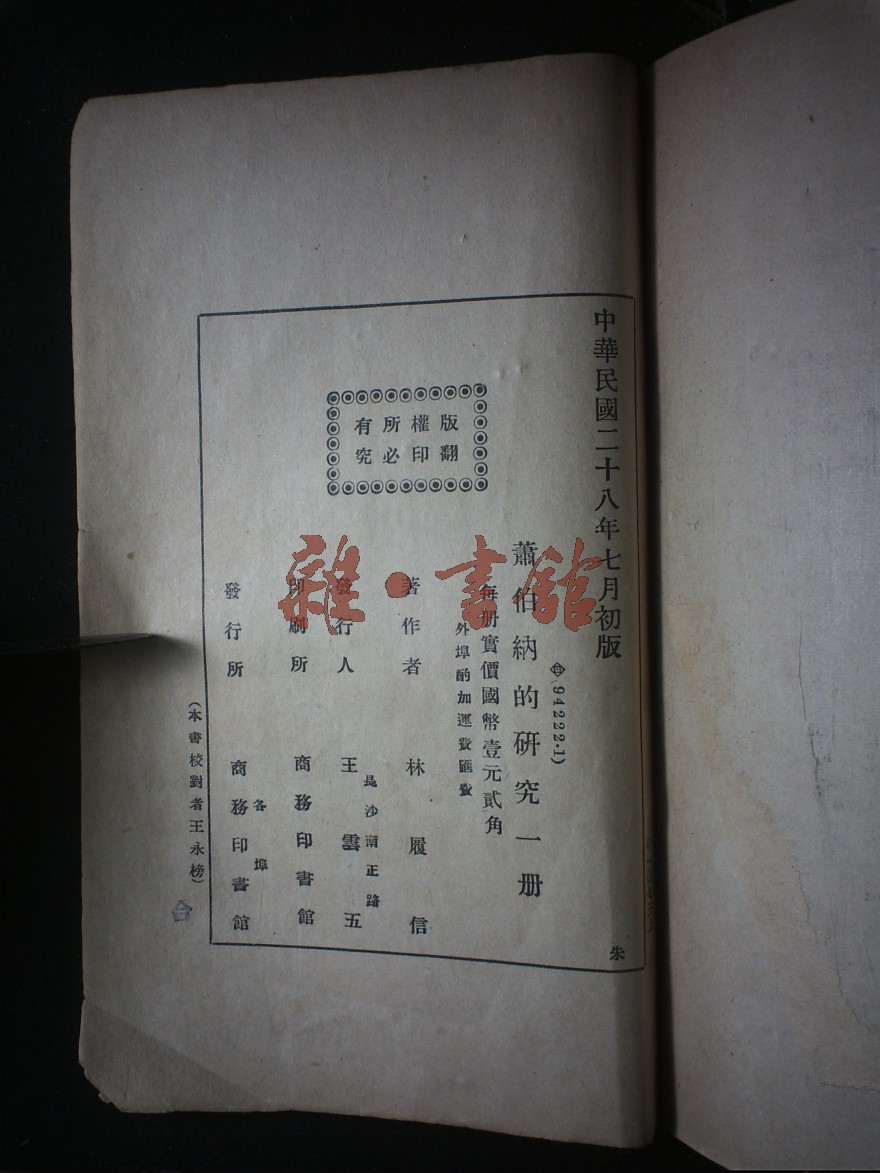 中華民國二十八年七月初版
(94222·1)
蕭伯納的研究一册
每册實價國幣壹元貳角
外埠酌加運費匯費
版權所有
翻印必究
著作者 林履信
發行人 王雲五
長沙南正路
印刷所 商務印書館
發行所 商務印書館
各埠
(本書校對者王永榜)
朱
雜·書館